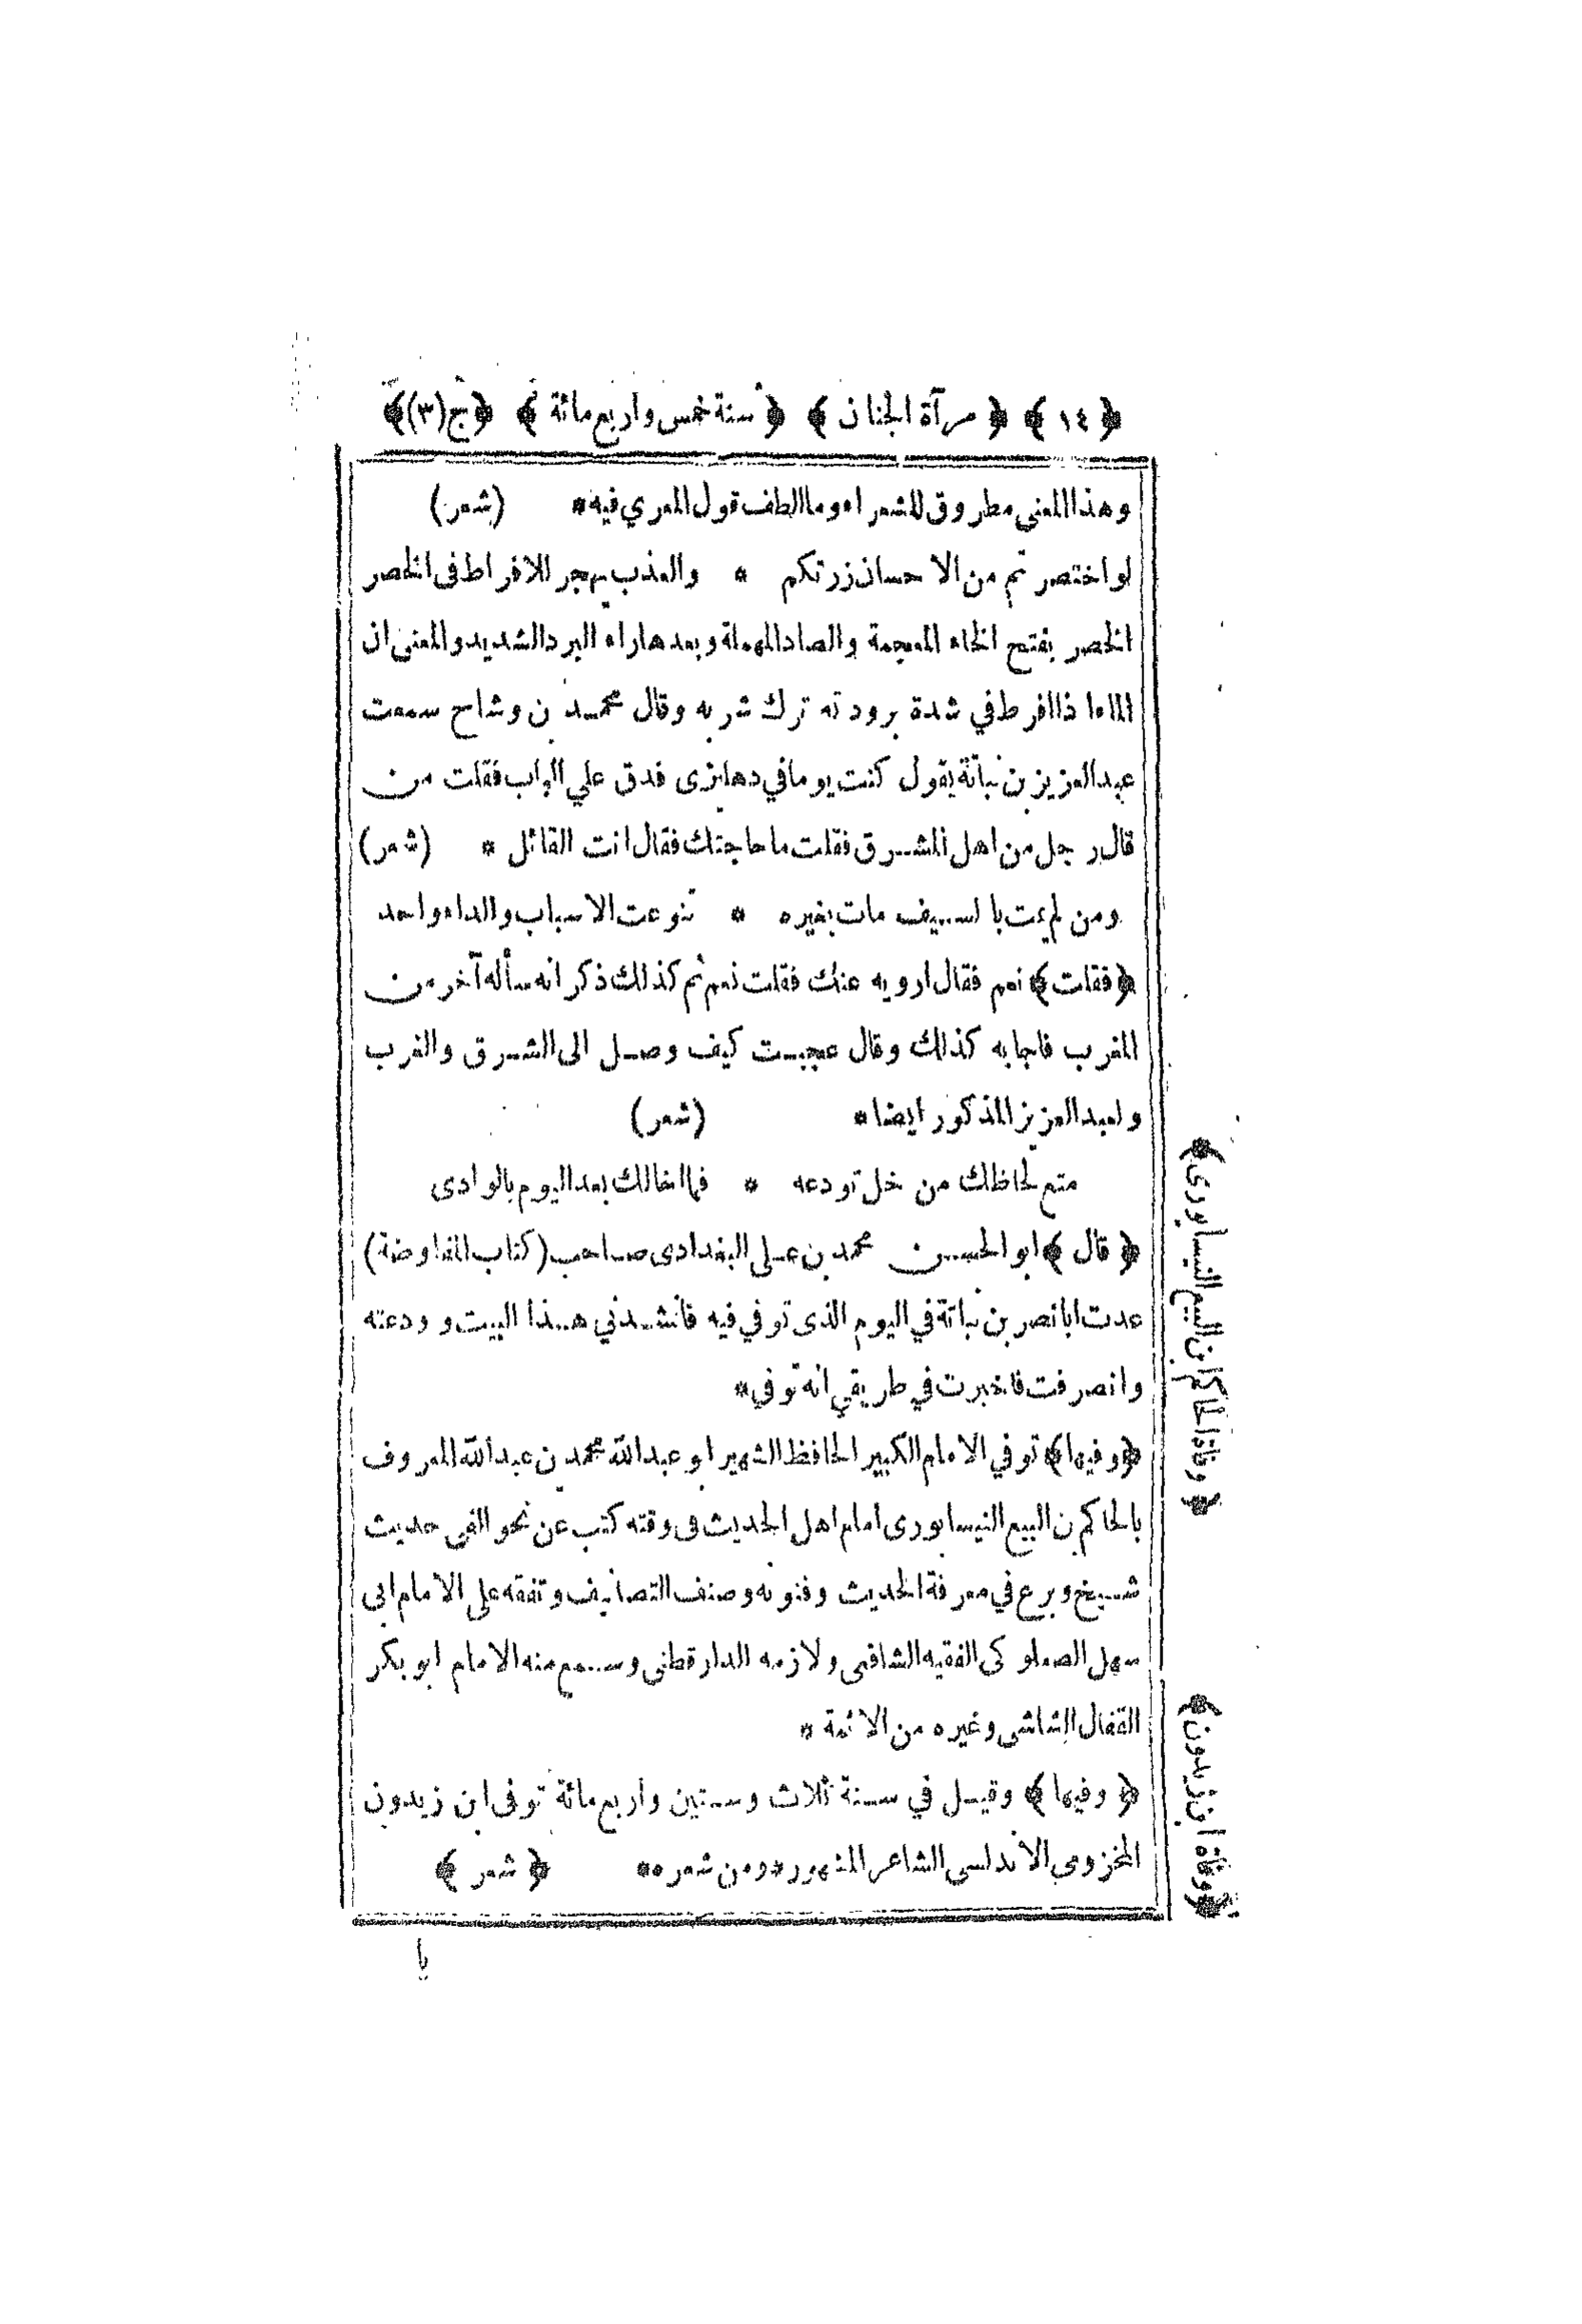 ﴿ ١٤ ﴾ ﴿ مرآة الجنان ﴾ ﴿ سنة خمس واربع مائة ﴾ ﴿ج (٣)﴾
وهذا المعنى مطروق للشعراء وما الطف قول المعري فيه * (شعر)
لو اختصرتم من الاحسان زرتكم * والعذب يهجر للافراط فى الخصر
الخصر بفتح الخاء المعجمة والصاد المهملة وبعدها راء البرد الشديد والمعنى ان
الماء اذا افرط في شدة برودته ترك شربه وقال محمد بن وشاح سمعت
عبد العزيز بن نباتة يقول كنت يوما في دهليزى فدق علي الباب فقلت من
قال رجل من اهل المشرق فقلت ما حاجتك فقال انت القائل * (شعر)
ومن لم يمت بالسيف مات بغيره * تنوعت الاسباب والداء واحد
﴿فقلت﴾ نعم فقال ارويه عنك فقلت نعم ثم كذلك ذكر انه سأله آخر من
المغرب فاجابه كذلك وقال عجبت كيف وصل الى الشرق والغرب
ولعبد العزيز المذكور ايضا * (شعر)
متع لحاظك من خل تودعه * فما اخالك بعد اليوم بالوادى
﴿ قال ﴾ ابو الحسن محمد بن على البغدادى صاحب (كتاب المفاوضة)
عدت ابا نصر بن نباتة في اليوم الذى توفي فيه فانشدني هذا البيت وودعته
وانصرفت فاخبرت في طريقي انه توفي *
﴿وفيها﴾ توفي الامام الكبير الحافظ الشهير ابو عبد الله محمد بن عبد الله المعروف
بالحاكم بن البيع النيسابورى امام اهل الحديث فى وقته كتب عن نحو الفى حديث
شيخ وبرع في معرفة الحديث وفنونه وصنف التصانيف وتفقه على الامام ابى
سهل الصعلوكى الفقيه الشافعى ولازمه الدارقطنى وسمع منه الامام ابو بكر
القفال الشاشى وغيره من الائمة *
﴿ وفيها ﴾ وقيل في سنة ثلاث وستين واربع مائة توفى ابن زيدون
المخزومى الاندلسى الشاعر المشهور * ومن شعره * ﴿ شعر ﴾
يا
﴿ وفاة الحاكم ابن البيع النيسابورى ﴾
﴿وفاة ابن زيدون﴾